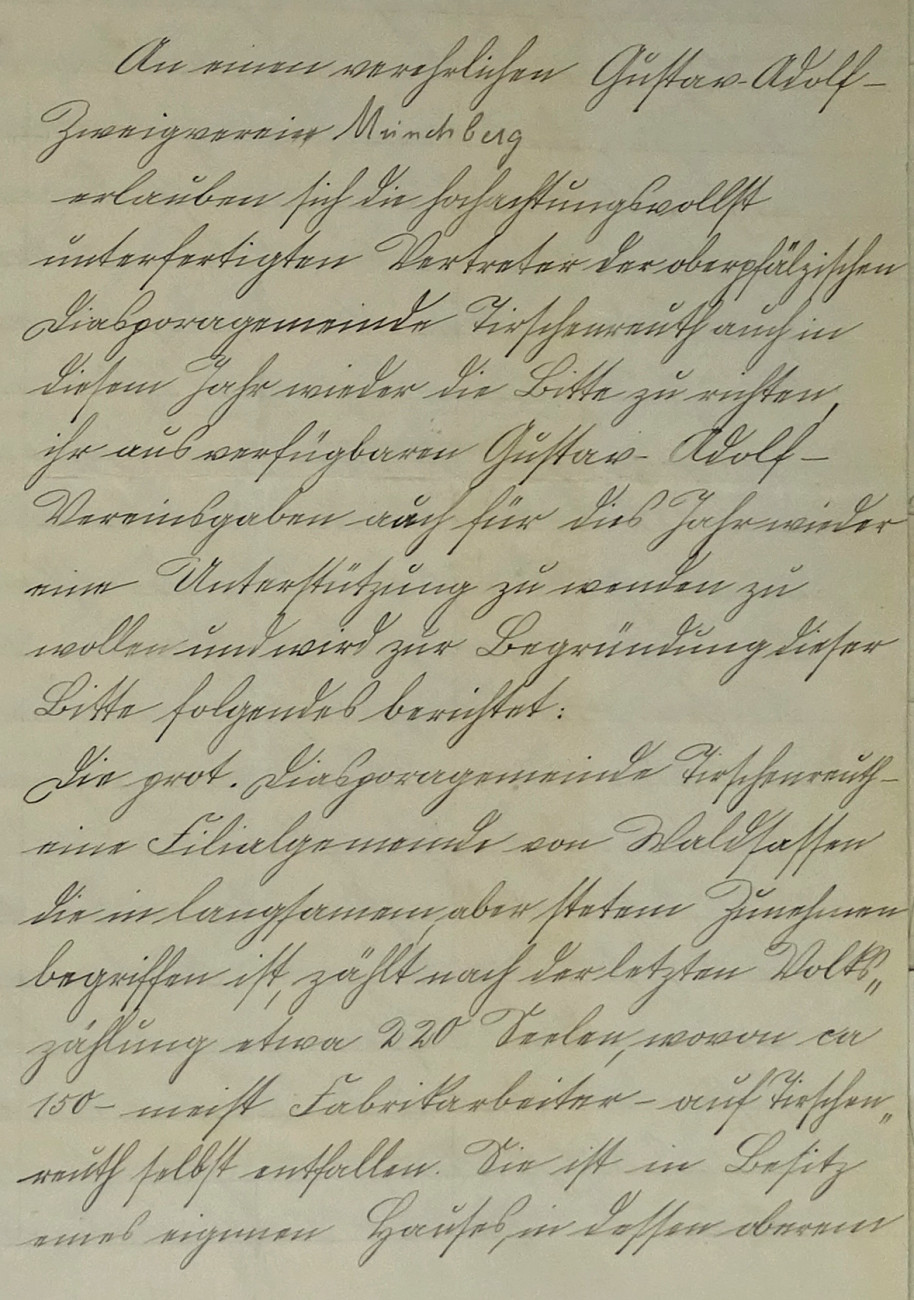 An einen verehrlichen Gustav-Adolf-
Zweigverein Münchberg
erlauben sich die hochachtungsvollst
unterfertigten Vertreter der oberpfälzischen
Diasporagemeinde Tirschenreuth auch in
diesem Jahr wieder die Bitte zu richten,
ihr aus verfügbaren Gustav-Adolf-
Vereinsgaben auch für dies Jahr wieder
eine Unterstützung zu wenden zu
wollen und wird zur Begründung dieser
Bitte folgendes berichtet:
Die prot. Diasporagemeinde Tirschenreuth-
eine Filialgemeinde von Waldsassen
die in langsamem, aber stetem Zunehmen
begriffen ist, zählt nach der letzten Volks„
zählung etwa 220 Seelen, wovon ca
150 - meist Fabrikarbeiter - auf Tirschen„
reuth selbst entfallen. Sie ist in Besitz
eines eigenen Hauses, in dessen oberem